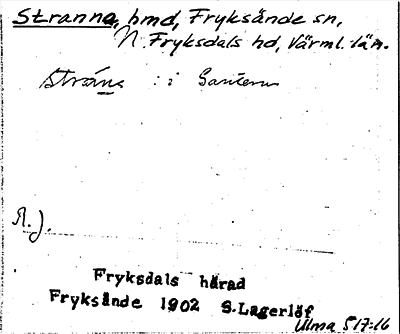 Stranna, hmd, Fryksände sn,
N. Fryksdals hd, Värml. län.
stråna : i
R. J.
Fryksdals härad
Fryksände 1902 S. Lagerlöf
Ulma 517:16